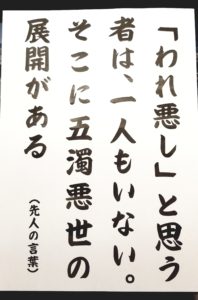 「われ悪し」と思う
者は、一人もいない。
そこに五濁悪世の
展開がある
（先人の言葉）